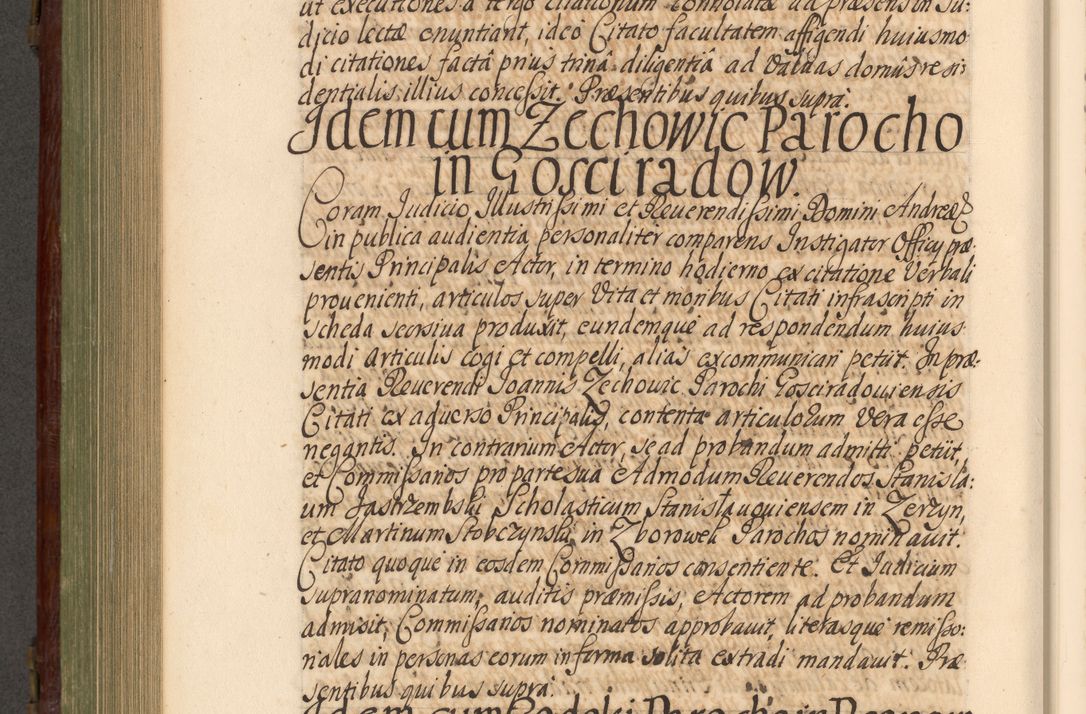 ut executiones a tergo citationum connotatæ ad præsens in Ju:
dicio lectæ enuntiant, ideo Citato facultatem affigendi huiusmo
di citationes factâ prius trinâ diligentiâ ad valuas domûs resi:
dentialis illius concessit. Præsentibus quibus supra.
Idem cum Zechowic Parocho
in Gosciradow.
Coram Judicio Illustrissimi et Reuerendissimi Domini Andreæ &
in publica audientia personaliter comparens Instigator Officij præ
sentis Principalis Actor, in termino hodierno ex citatione Verbali
prouenienti, articulos super Vita et moribus Citati infrascripti in
scheda seorsiua produxit, eundemque ad respondendum huius
modi Articulis cogi et compelli, alias excommunicari petiit. In præ:
sentia Reuerendi Joannis Zechowic Parochi Gosciradouiensis
Citati ex aduerso Principalis, contenta articulorum Vera esse
negantis. In contrarium Actor, se ad probandum admitti petiit,
et Commissarios pro parte sua Admodum Reuerendos Stanisla:
um Jastrzembski Scholasticum Stanislauouiensem in Zerzyn,
et Martinum Stobczynski in Zborowek Parochos nominauit.
Citato quoque in eosdem Commissarios consentiente. Et Judicium
supranominatum, auditis præmissis, Actorem ad probandum
admisit, Commissarios nominatos approbauit, literasque remisso:
riales in personas eorum in forma solita extradi mandauit. Præ
sentibus quibus supra.
Idem cum Parocho in